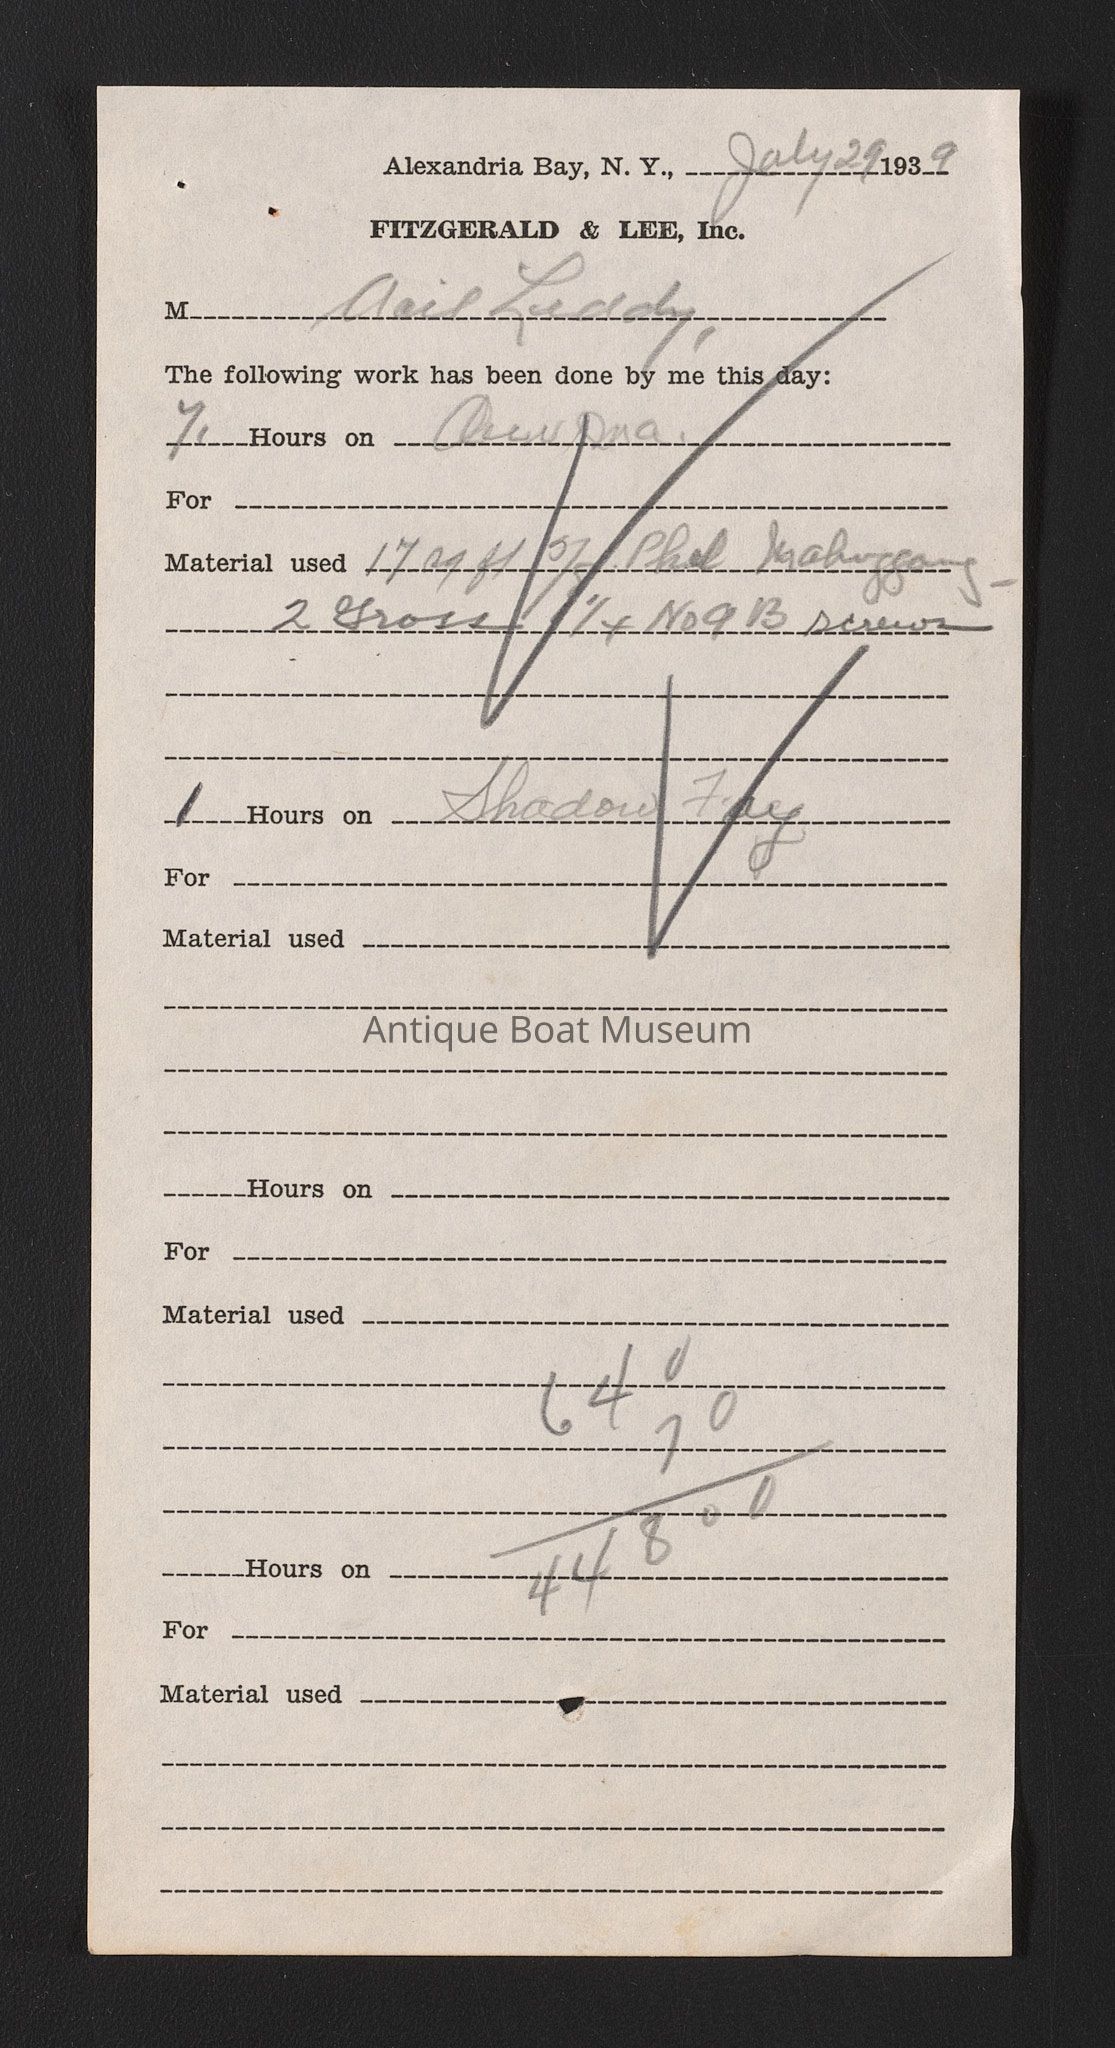 Alexandria Bay, N. Y., July 29 1939
FITZGERALD & LEE, Inc.
M Leddy,
The following work has been done by me this day:
7. Hours on
For
Material used 17 sq ft 5/8 Phil Mahoggany -
2 Gross 1 1/4 No 9 B screws
1 Hours on Shadow Fay
For
Material used
Antique Boat Museum
Hours on
For
Material used
640
70
44800
Hours on
For
Material used